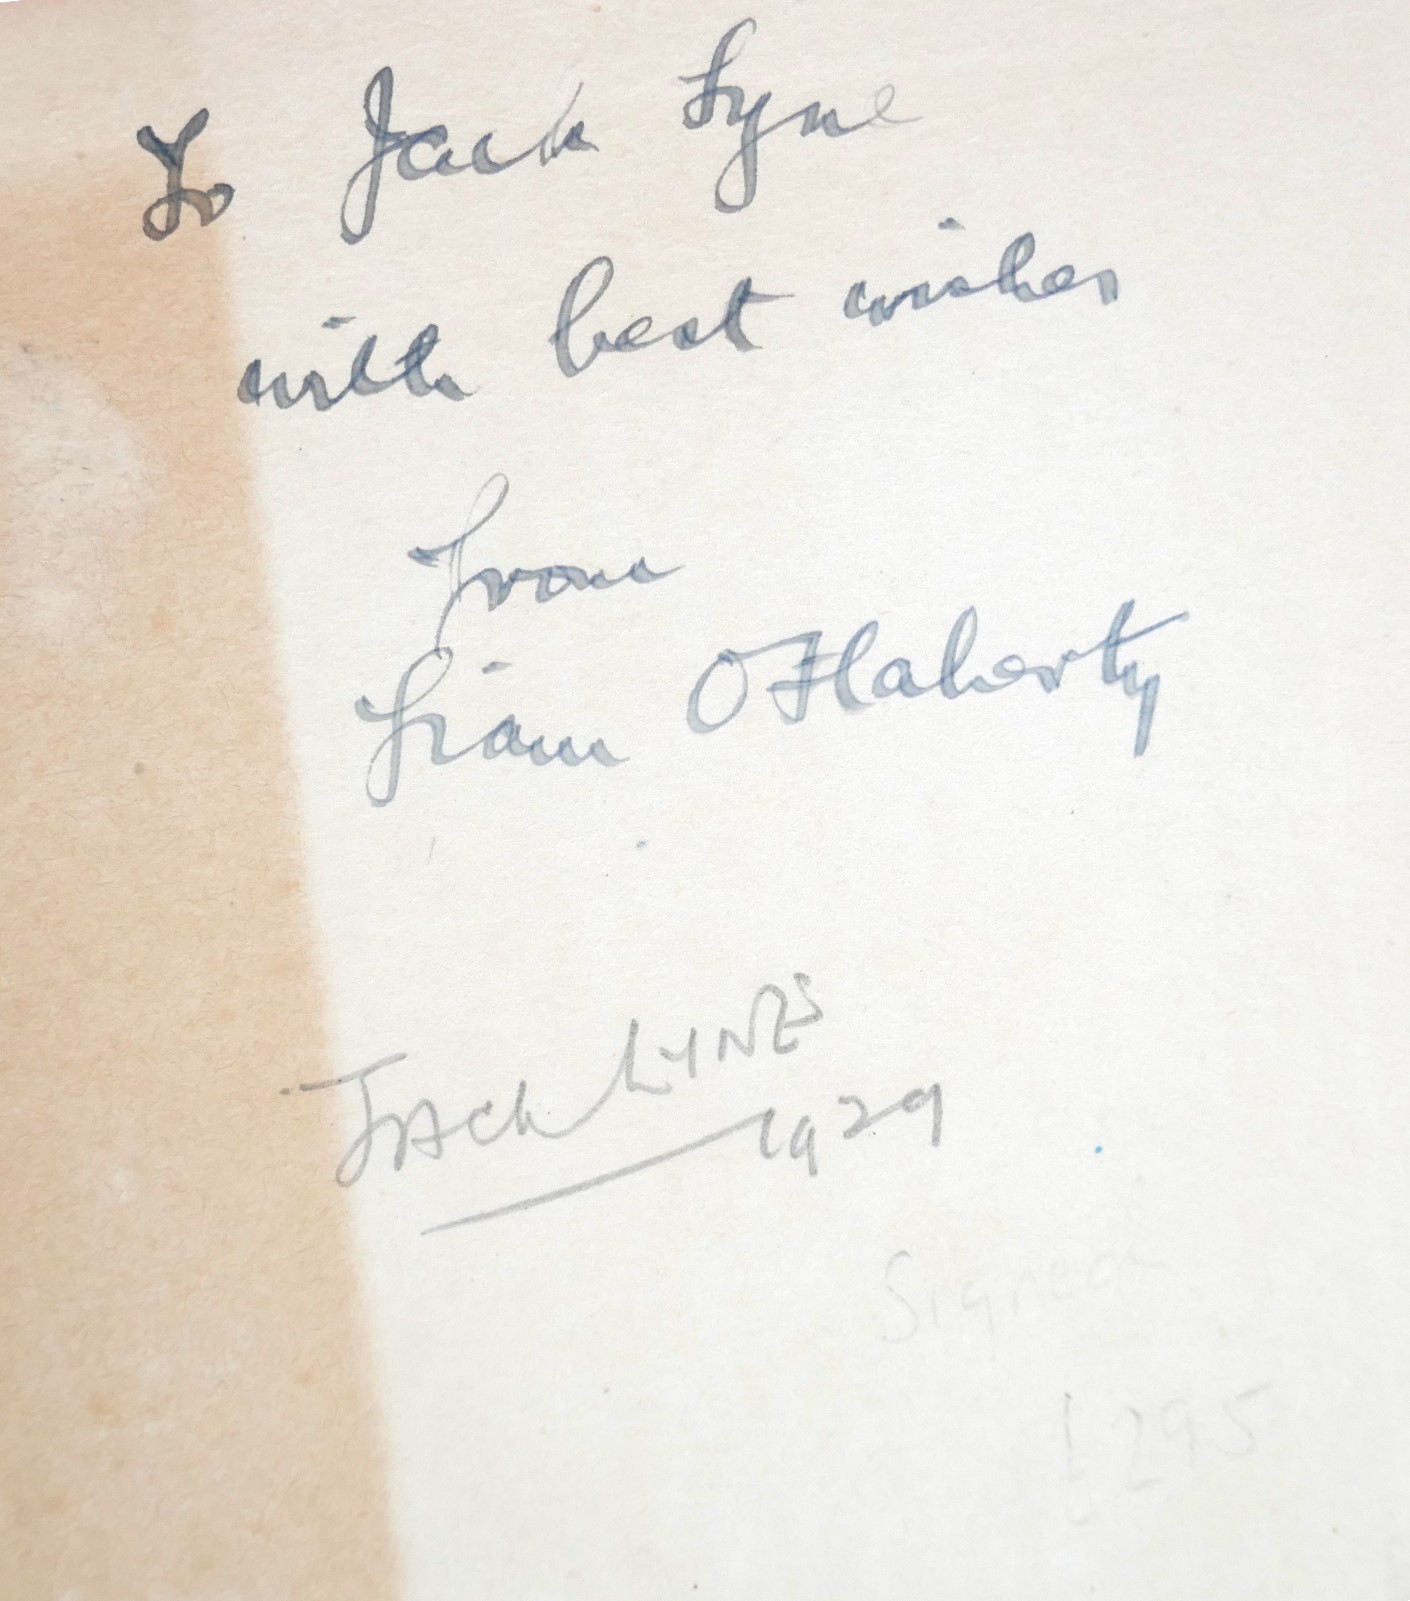 To Jack Lyne
with best wishes
from
Liam O'Flaherty
JACK LYNES
1929
Signed
£295